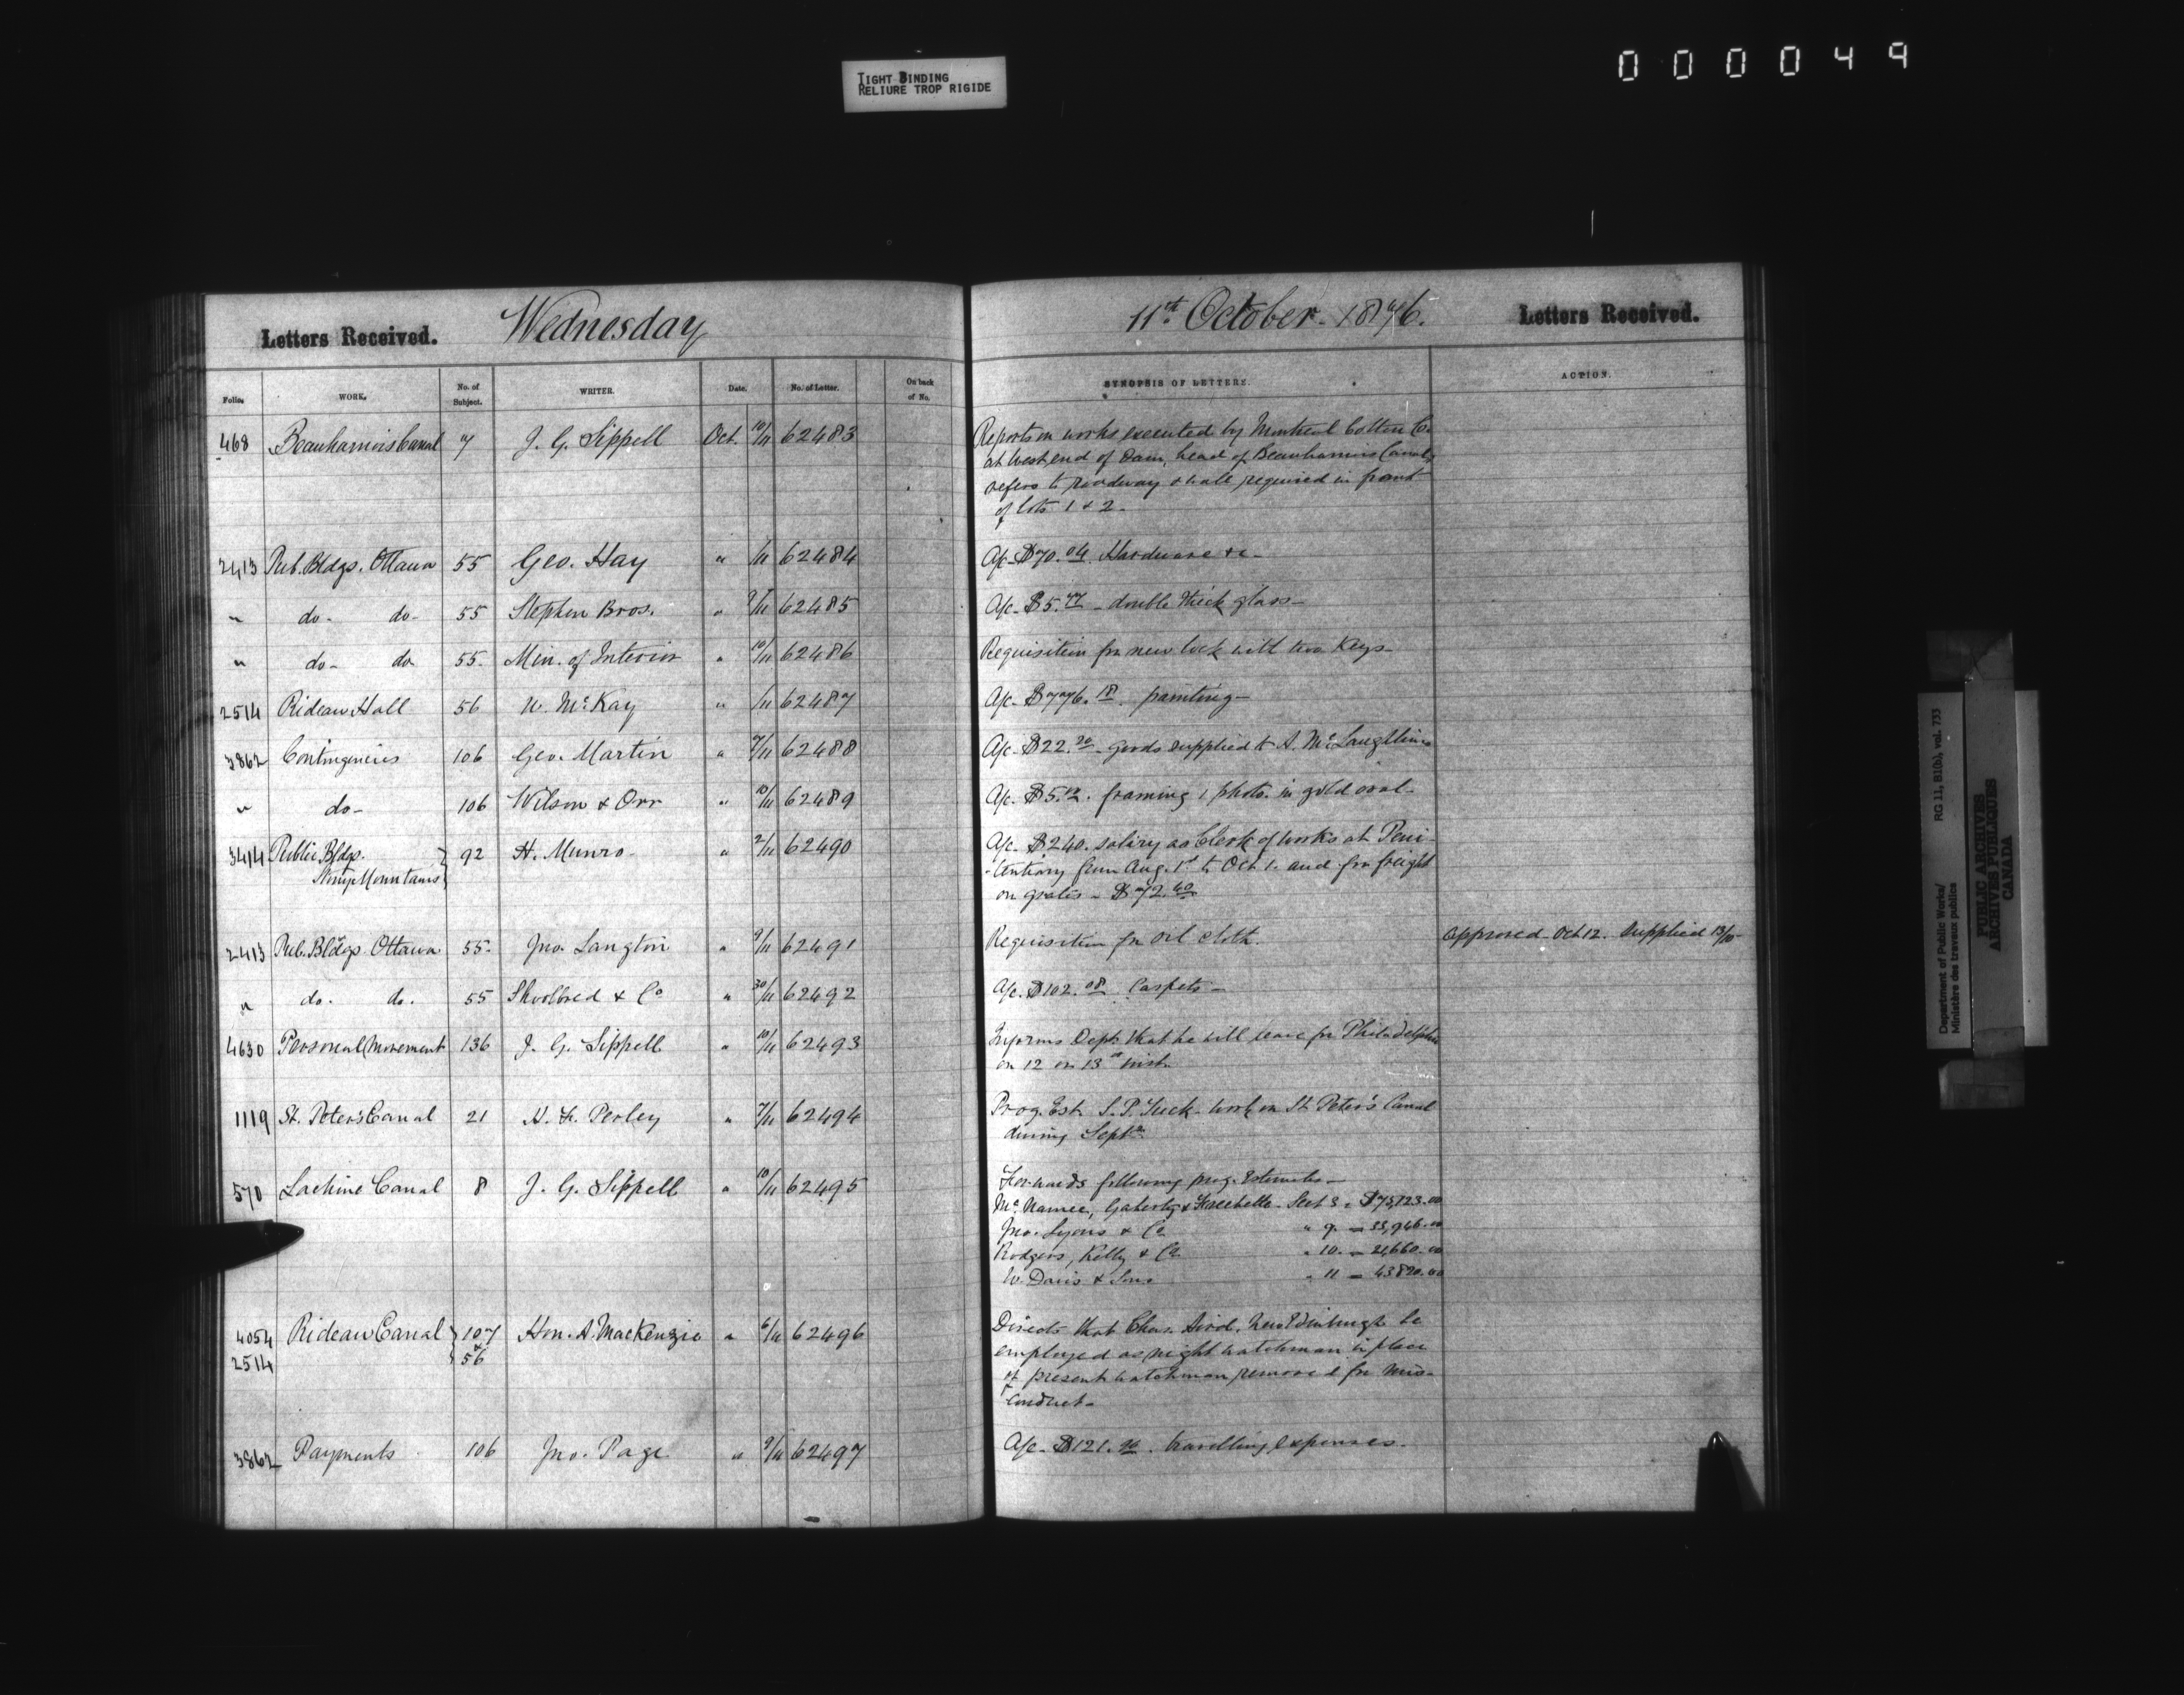 TIGHT BINDING
RELIURE TROP RIGIDE
000049
Letters Received. Wednesday
11th October. 1876. Letters Received.
Folio. WORK. No. of Subject. WRITER. Date. No. of Letter. On back of No. SYNOPSIS OF LETTERS. ACTION.
468 Beauharnois Canal 7 J. G. Sippell Oct. 10/11 62483 Reports on works executed by Montreal Cotton Co.
at West end of Dam, head of Beauharnois Canal,
refers to roadway & wall required in front
of lots 1 & 2.
2413 Pub. Bldgs. Ottawa 55 Geo. Hay " /11 62484 A/c. $70.04 Hardware &c-
" do- do- 55 Stephen Bros. " 9/11 62485 A/c. $5.77 - double thick glass-
" do- do 55. Min. of Interior " 10/11 62486 Requisition for new lock with two Keys-
2514 Rideau Hall 56 W. McKay " /11 62487 A/c. $776.18. painting-
3862 Contingencies 106 Geo. Martin " 7/11 62488 A/c. $22.20 - goods supplied to A. McLaughlin
" do- 106 Wilson & Orr " 10/11 62489 A/c. $5.12. framing 1 photo. in gold oval-
3414 Public Bldgs. 92 H. Munro- " 2/11 62490 A/c. $240. salary as Clerk of works at Peni-
Stony Mountains
-tentiary from Aug. 1st to Oct 1. and for freight
on grates - $72.60
2413 Pub. Bldgs Ottawa 55. Jno. Langton " 9/11 62491 Requisition for oil cloth. Approved Oct 12. Supplied 13/10-
" do. do. 55 Shoolbred & Co " 30/11 62492 A/c. $102.08 Carpets-
4630 Personal Movement 136 J. G. Sippell " 10/11 62493 Informs Dept. that he will leave for Philadelphia
on 12 or 13th inst.
1119 St. Peter's Canal 21 H. F. Perley " 7/11 62494 Prog. Est. S. P. Tuck - work on St. Peter's Canal
during Septr.
570 Lachine Canal 8 J. G. Sippell " 10/11 62495 Forwards following prog. Estimates-
McNamee, Gaherty & Frechette - Sect 3 = $75,123.00
Jno. Lyons & Co " 9. = 33,946.00
Rodgers, Kelly & Co " 10. = 21,660.00
W. Davis & Sons " 11 = 43820.00
4054 Rideau Canal 107 Hon. A. MacKenzie " 6/11 62496 Directs that Chas. Aird, New Edinburgh be
2514 & 56
employed as night watchman in place
of present watchman removed for mis-
conduct-
3862 Payments 106 Jno. Page " 9/11 62497 A/c. $121. travelling expenses.
Department of Public Works/ RG 11, B1(b), vol. 733
Ministère des travaux publics
PUBLIC ARCHIVES
ARCHIVES PUBLIQUES
CANADA